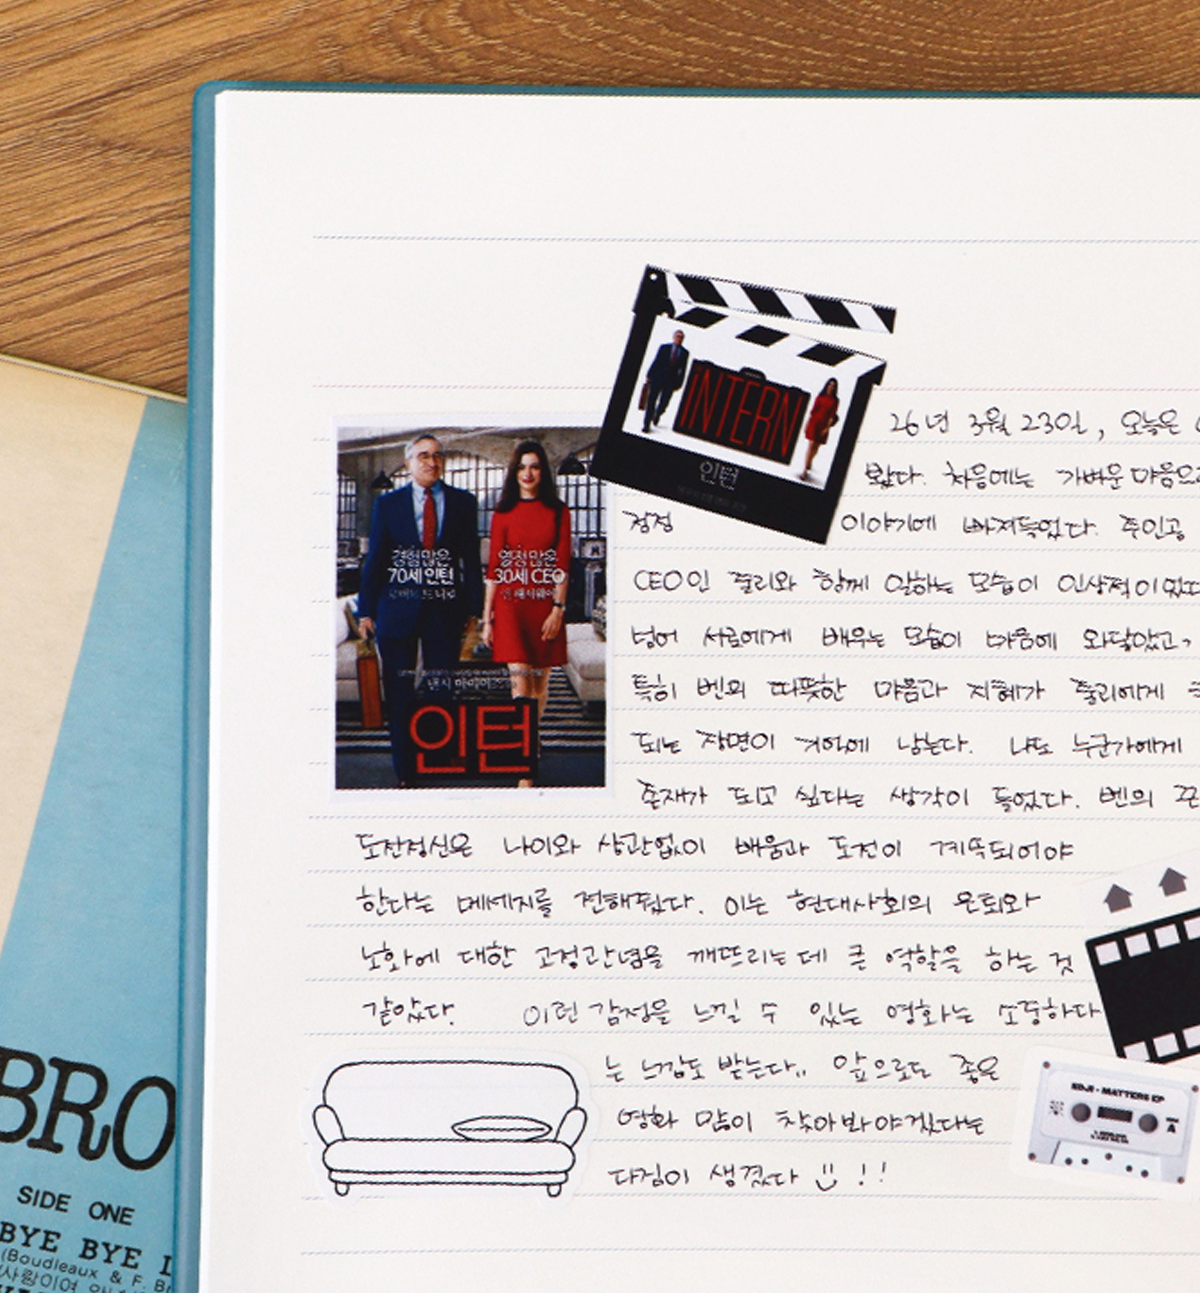 INTERN
인턴
경험 많은
70세 인턴
열정 많은
30세 CEO
낸시 마이어스
인턴
26년 3월 23일, 오늘은
봤다. 처음에는 가벼운 마음으로
점점 이야기에 빠져들었다. 주인공
CEO인 줄리와 함께 일하는 모습이 인상적이었다
넘어 서로에게 배우는 모습이 마음에 와닿았고,
특히 벤의 따뜻한 마음과 지혜가 줄리에게
되는 장면이 기억에 남는다. 나도 누군가에게
존재가 되고 싶다는 생각이 들었다. 벤의
도전정신은 나이와 상관없이 배움과 도전이 계속되어야
한다는 메세지를 전해줬다. 이는 현대사회의 은퇴와
노화에 대한 고정관념을 깨뜨리는데 큰 역할을 하는 것
같았다. 이런 감정을 느낄 수 있는 영화는 소중하다
는 느낌도 받는다.. 앞으로도 좋은
영화 많이 찾아봐야겠다는
다짐이 생겼다 !!
EDJI - MATTERS EP
A
BRO
SIDE ONE
BYE BYE L
(Boudleaux & F. Br
(사랑이여 안녕